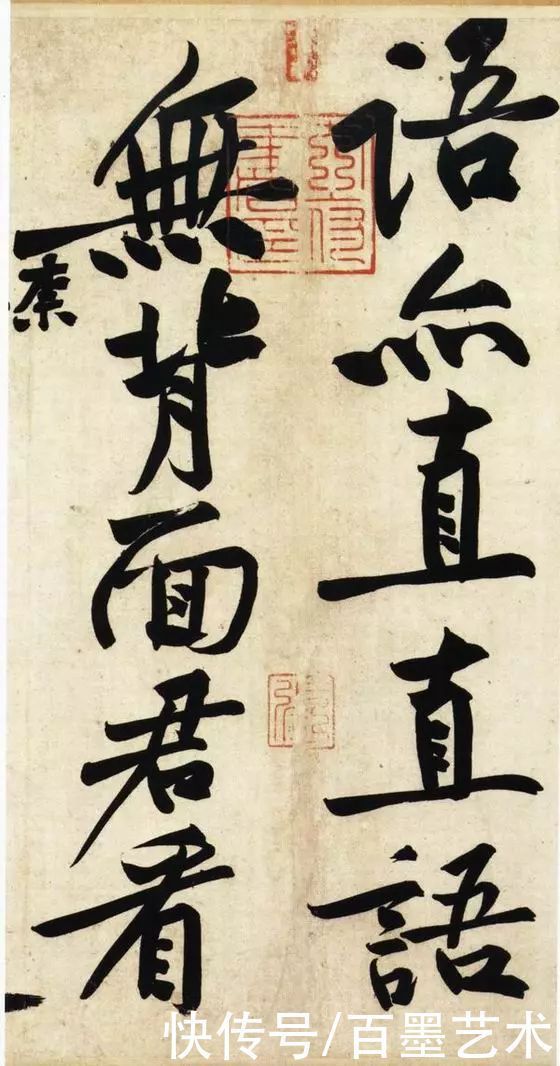 語亦直直語
無背面君看
快传号/百墨艺术